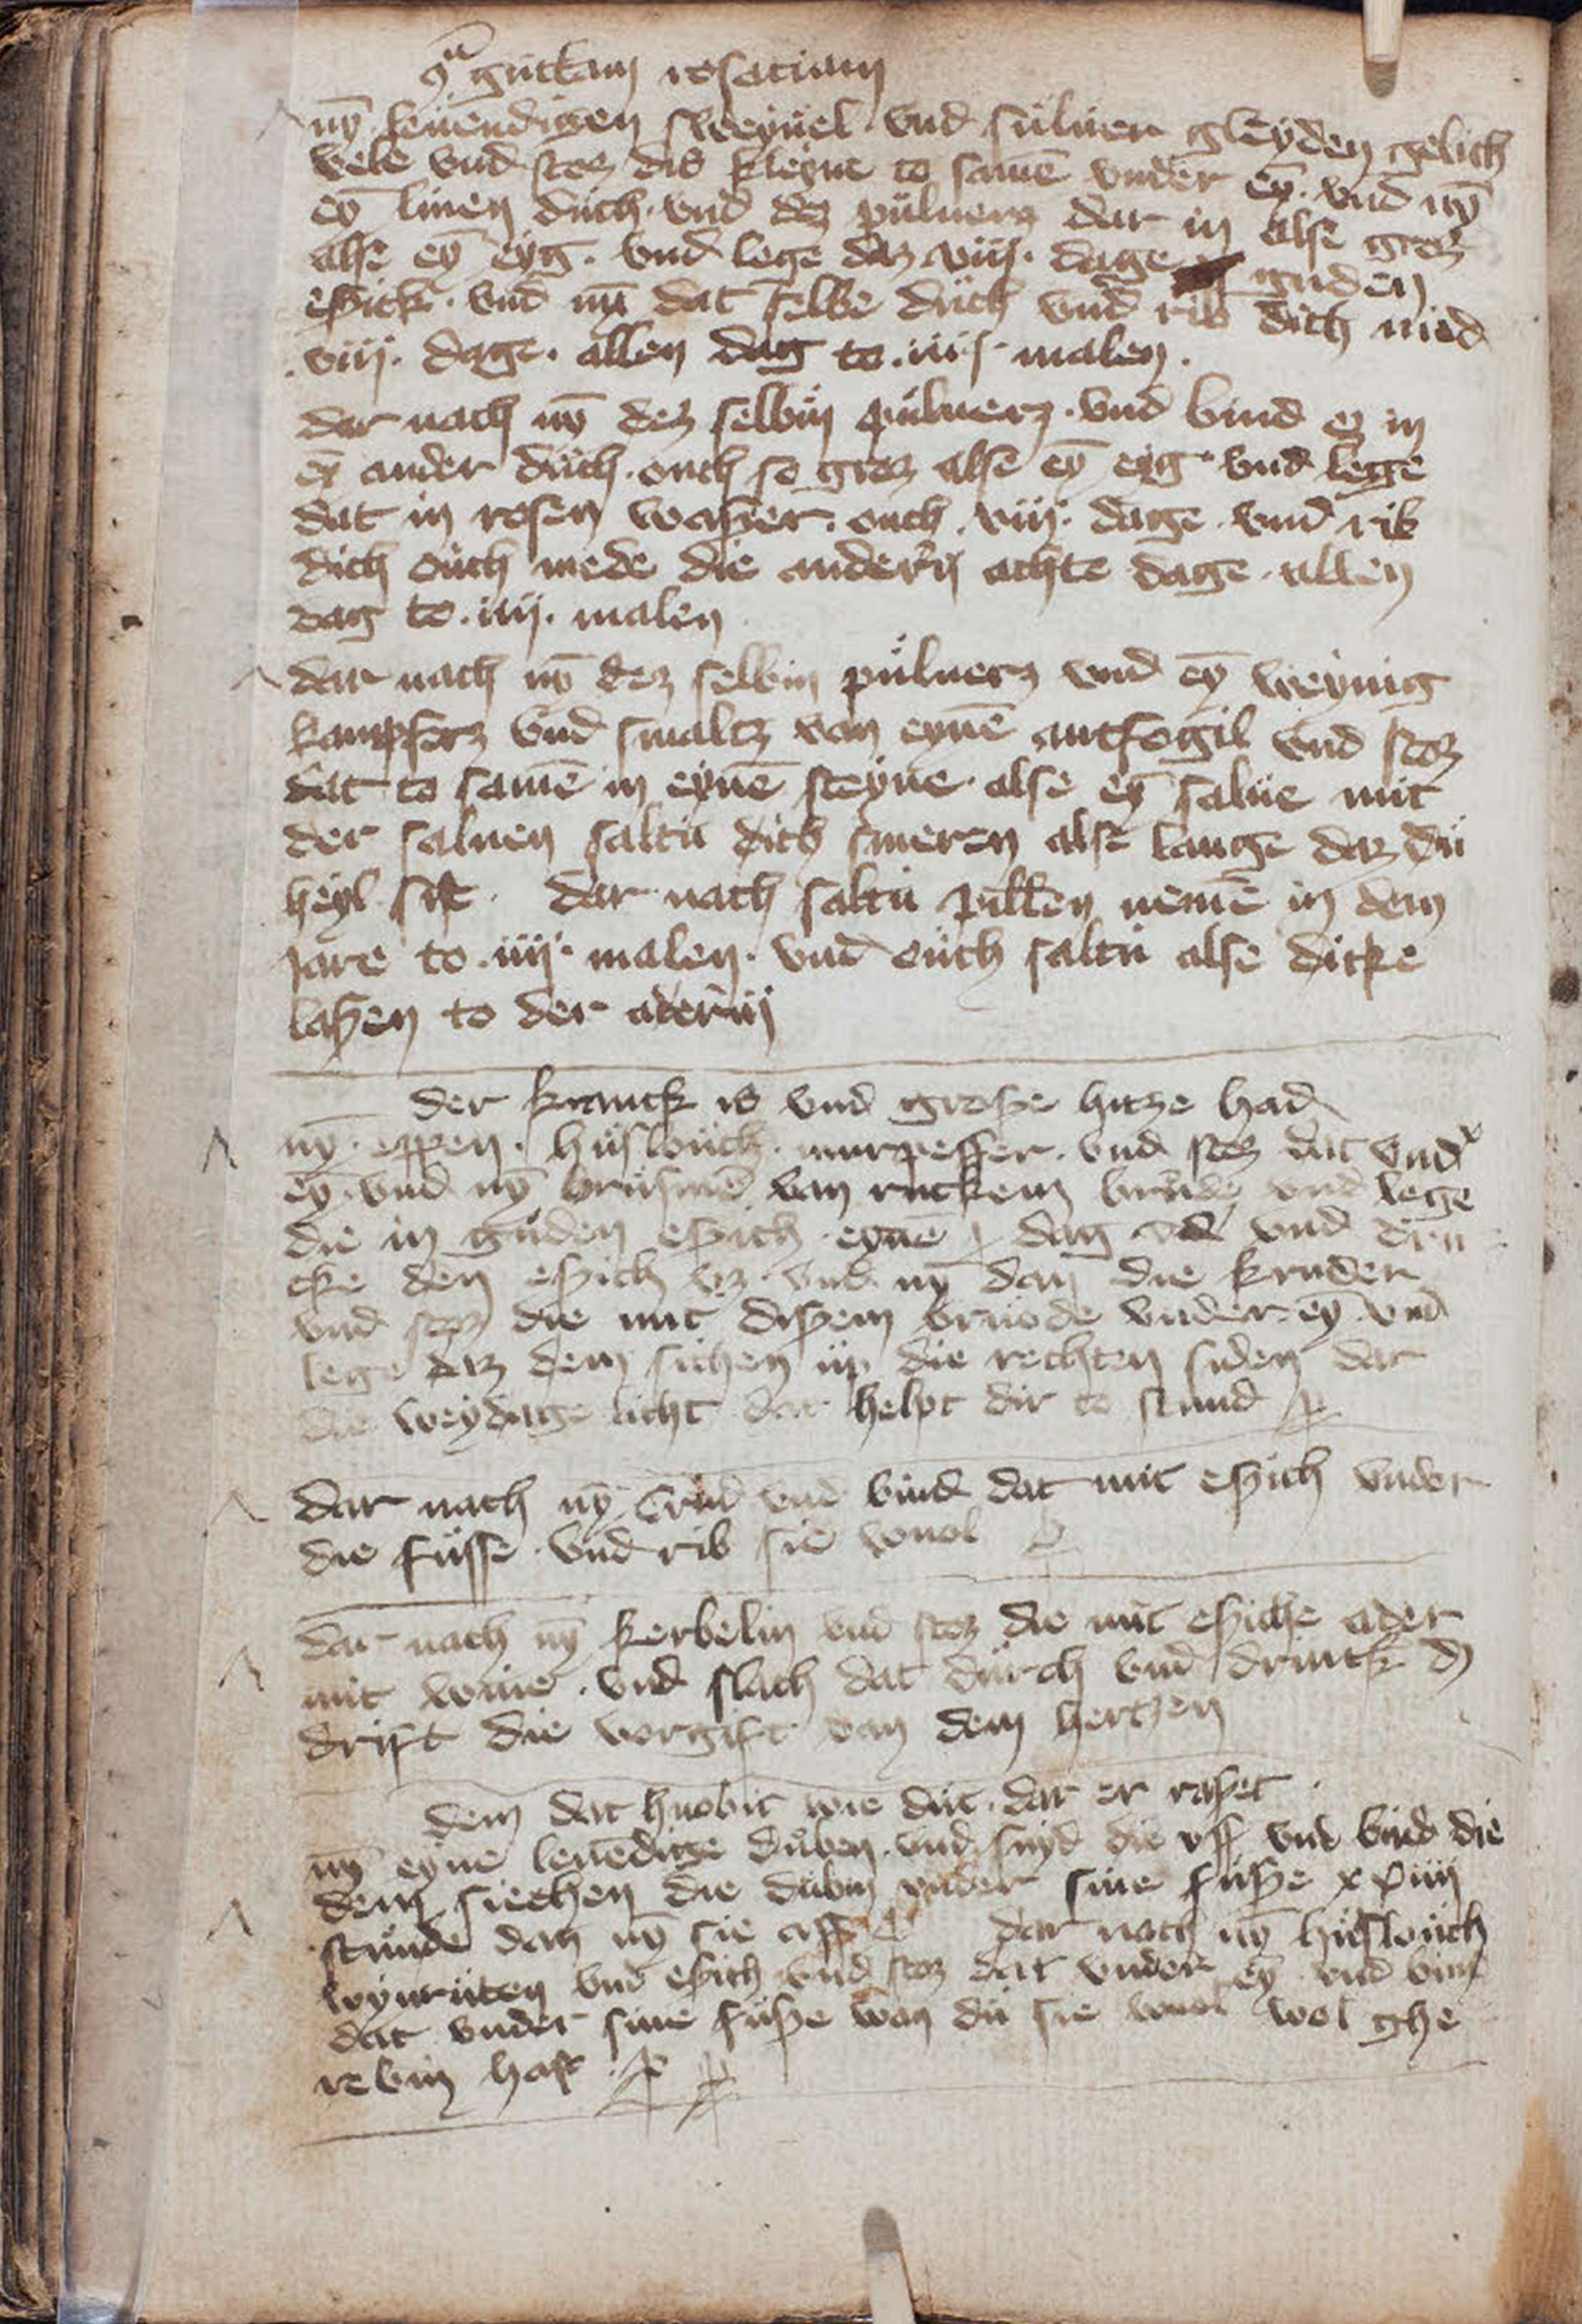 9ᵃ guttam rosaciam
nӯ leuēndigen sweyuel · vnd suluer gleyden gelich
vele vnd stoz dis kleyne to samē vnder eȳ · vnd nȳ
eȳ linen důch · vnd dez puluerz dar in alse groz
alse eȳ eyg · vnd lege daz viij · dage guden
eszick · vnd nȳ dat selbe důch vnd rib dich med
· viij · dage · allen dag to · iiij · malen ·
dar nach nȳ dez selbin puluerz · vnd bind ez in
eȳ ander důch · ouch so groz alse eȳ eyg · vnd lege
dat in rosen waszer · ouch · viij · dage · vnd rib
dich ouch mede die andern achte dage · allen
dag to · iiij · malen
dar nach nȳ dez selbin puluerz vnd eȳ weynig
kampferz vnd smaltz van eynē antfogil vnd stoz
dat to samē in eynē steyne · alse eȳ salue mit
der saluen saltu dich smeren alse lange daz du
heyl sist · dar nach saltu pillen nemē in dem
jare to · iiij · malen · vnd ouch saltu alse dicke
laszen to der adern
der kranck is vnd grosze hitze had
nȳ · eppen · huslouch · murpeffer · vnd stoz dat vnd'
eȳ · vnd nȳ brusmē van ruckem brude vnd lege
die in guden eszich eynē dag vnd dru
cke den eszich vz · vnd nȳ dan die kruder
vnd stoz die mit diszem bruode vnder eȳ vnd
lege daz dem sichen up die rechten siden dar
die weydage licht dat helpt dir to stund
dar nach nȳ crud vnd bind dat mit eszich vnder
die fusse · vnd rib sie wuol
dar nach nȳ kerbelin vnd stoz die mit esziche ader
mit wine · vnd slach dat durch vnd drinck dz
drift die vorgift van dem hertzen
dem dat houbit we dut · dar er raszet ·
nȳ eyne leuēdige duben · vnd snyd die vff vnd bind die
dem siechen die dubin vnder sine fusze xxiiij
stunde dan nȳ sie aff dar nach nȳ huslouch
wynruten vnd eszich vnd stoz dat vnder eȳ vnd bind
dat vnder sine fusze wan du sie wuol wol ghe
rebin hast